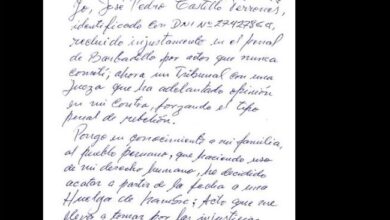 Yo, José Pedro Castillo Terrones,
identificado con DNI Nº 27427864,
recluido injustamente en el penal
de Barbadillo por actos que nunca
cometí; ahora un Tribunal con una
Jueza que ha adelantado opinión
en mi contra, forzando el tipo
penal de rebelión.
Pongo en conocimiento a mi familia,
al pueblo peruano, que haciendo uso
de mi derecho humano, he decidido
acatar a partir de la fecha a una
Huelga de hambre; Acto que me
llevó a tomar por las injusticias